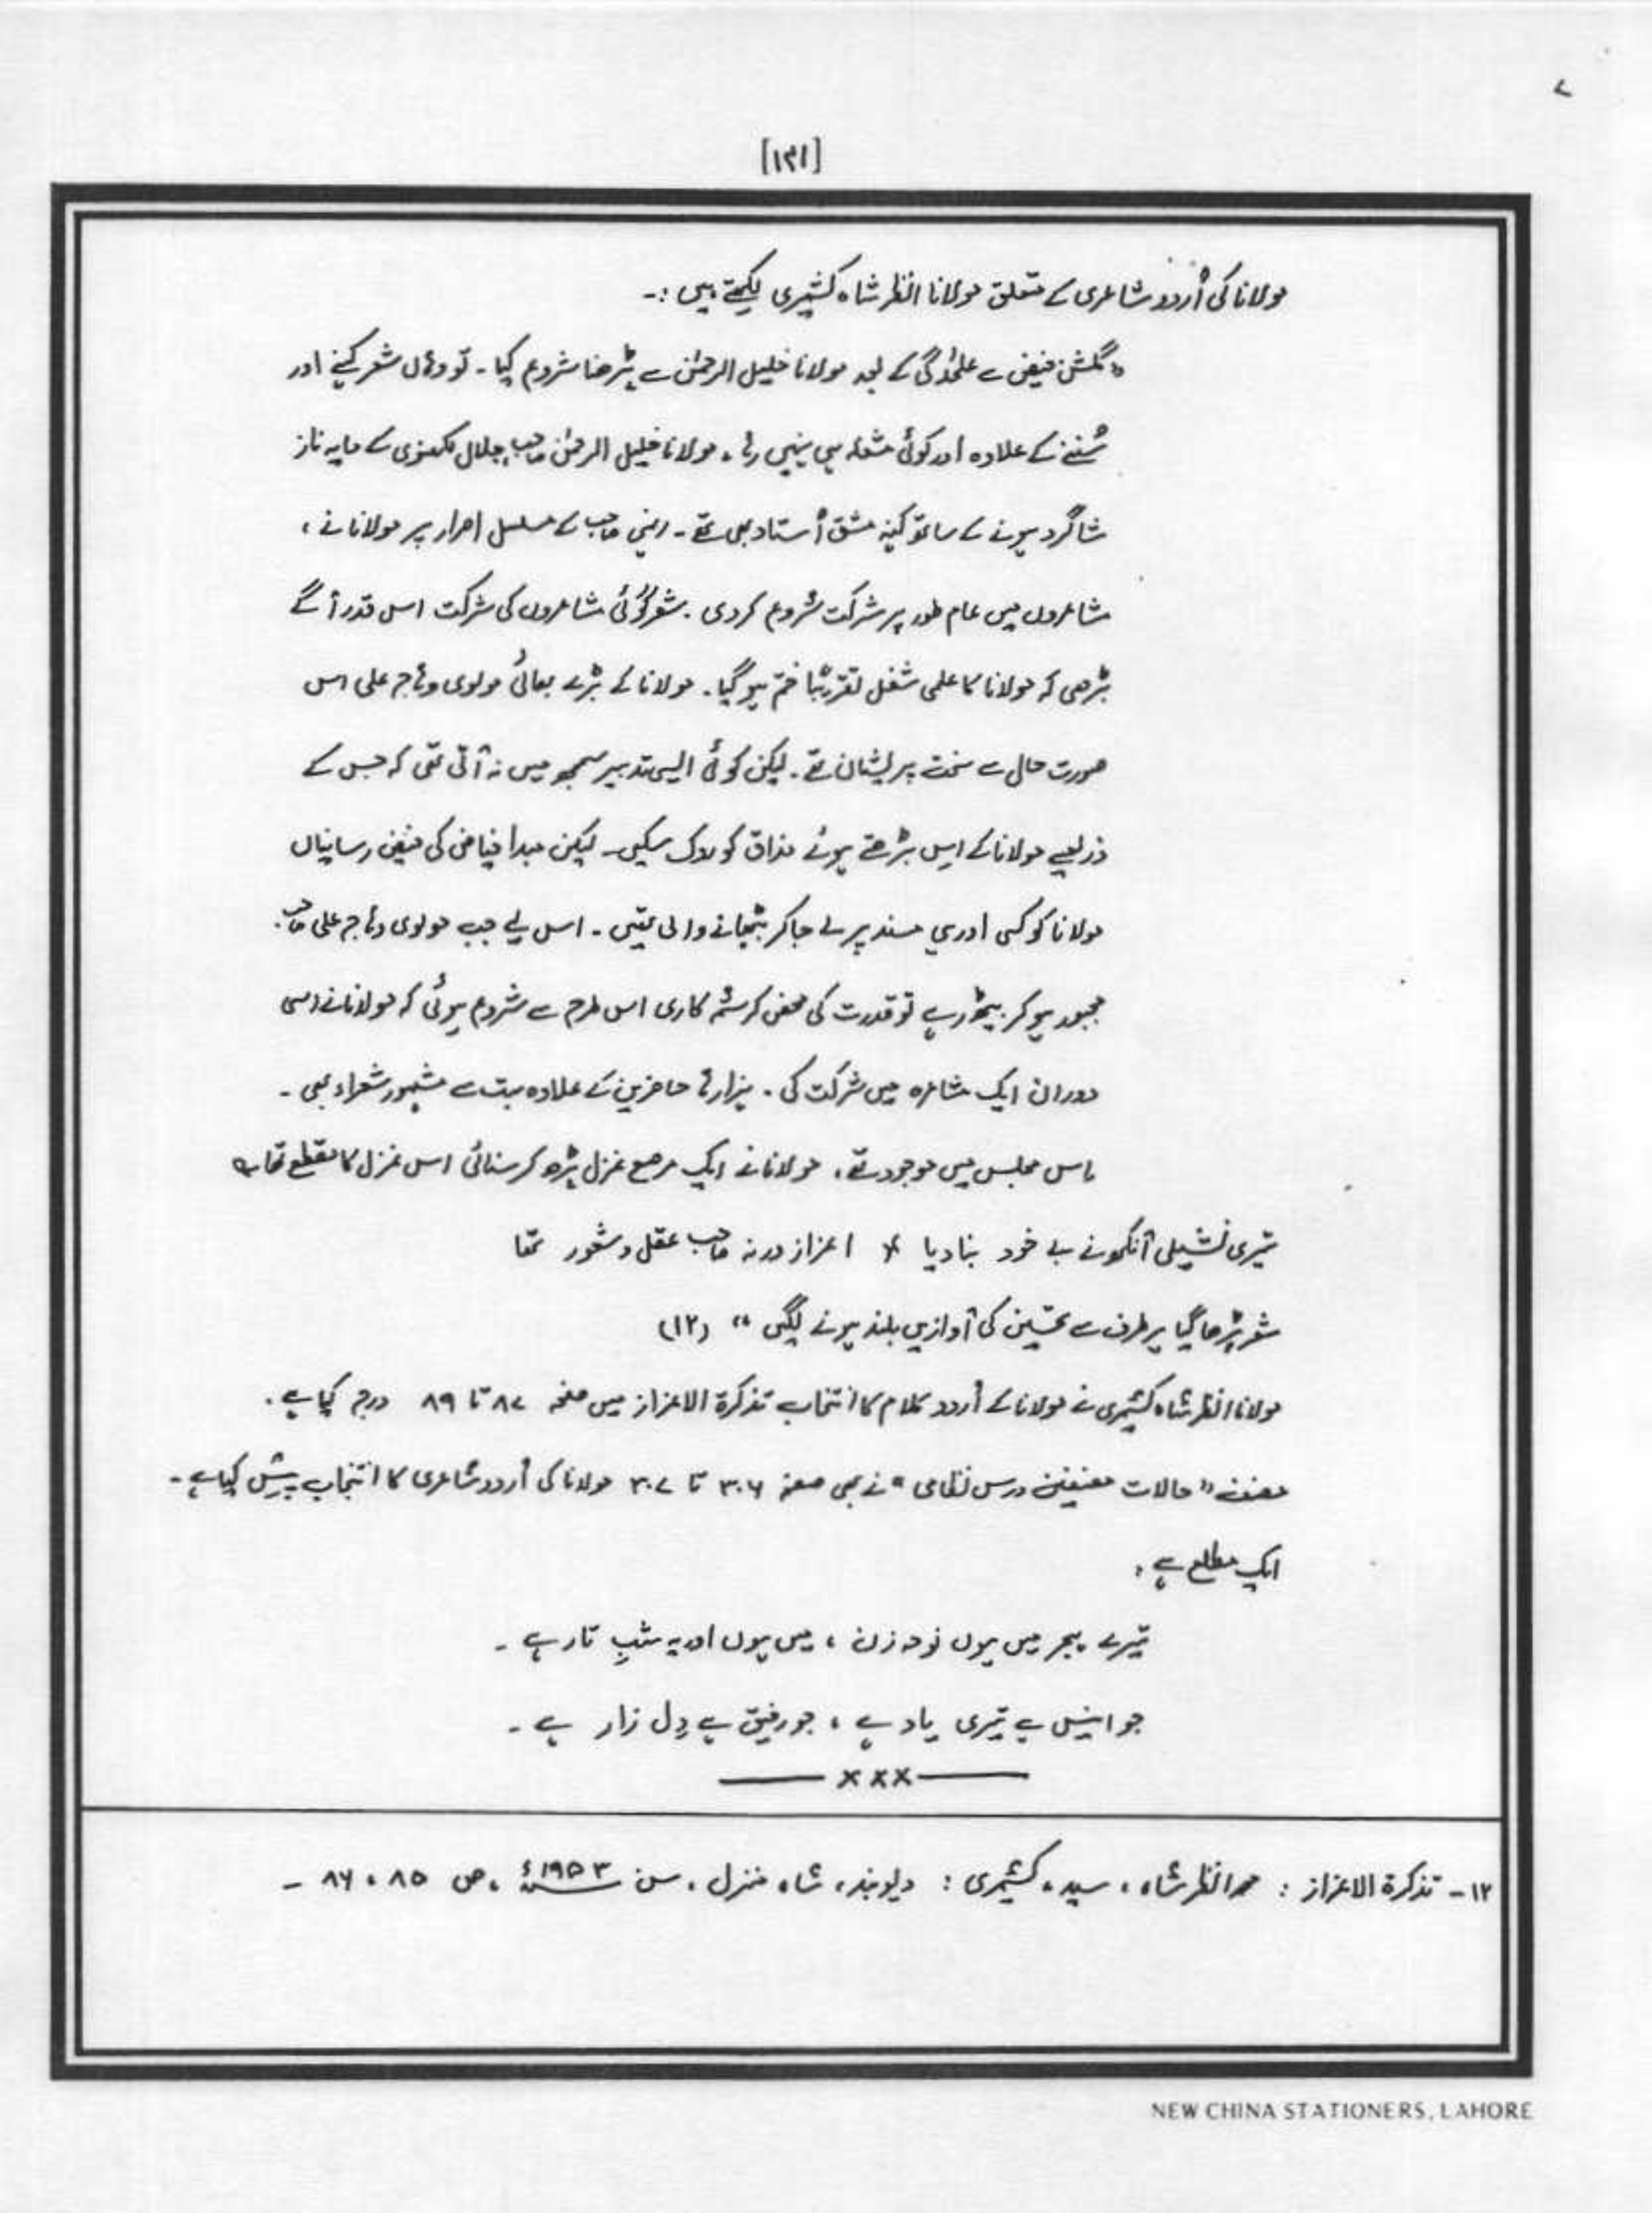 ۷
[۱۳۱]
مولانا کی اُردو شاعری کے متعلق مولانا انظر شاہ کشمیری لکھتے ہیں :-
"گلشن فیض سے علحٰدگی کے بعد مولانا خلیل الرحمٰن سے پڑھنا شروع کیا۔ تو وہاں شعر کہنے اور
سُننے کے علاوہ اور کوئی مشغلہ ہی نہیں رہا۔ مولانا خلیل الرحمٰن صاحب، جلال لکھنوی کے مایہ ناز
شاگرد ہونے کے ساتھ کہنہ مشق اُستاد بھی تھے۔ انہی صاحب کے مسلسل اصرار پر مولانا نے،
مشاعروں میں عام طور پر شرکت شروع کردی۔ شعر گوئی مشاعروں کی شرکت اس قدر آگے
بڑھی کہ مولانا کا علمی شغل تقریبًا ختم ہو گیا۔ مولانا کے بڑے بھائی مولوی وہاج علی اس
صورت حال سے سخت پریشان تھے۔ لیکن کوئی ایسی تدبیر سمجھ میں نہ آتی تھی کہ جس کے
ذریعے مولانا کے اس بڑھتے ہوئے مذاق کو روک سکیں۔ لیکن مبدا فیاض کی فیض رسانیاں
مولانا کو کسی اور ہی مسند پر لے جاکر بٹھانے والی تھیں۔ اس لیے جب مولوی وہاج علی صاحب
مجبور ہو کر بیٹھ رہے تو قدرت کی محض کرشمہ کاری اس طرح سے شروع ہوئی کہ مولانا نے اسی
دوران ایک مشاعرہ میں شرکت کی۔ ہزارہا حاضرین کے علاوہ بہت سے مشہور شعراء بھی۔
اس مجلس میں موجود تھے۔ مولانا نے ایک مرصع غزل پڑھ کر سنائی اس غزل کا مقطع تھا؎
تیری نشیلی آنکھ نے بے خود بنا دیا ٭ اعزاز ورنہ صاحب عقل و شعور تھا
شعر پڑھا گیا ہر طرف سے تحسین کی آوازیں بلند ہونے لگیں" (۱۲)
مولانا انظر شاہ کشمیری نے مولانا کے اُردو کلام کا انتخاب تذکرۃ الاعزاز میں صفحہ ۸۷ تا ۸۹ درج کیا ہے۔
مصنف "حالات مصنفین درس نظامی" نے بھی صفحہ ۳۰۶ تا ۳۰۷ مولانا کی اُردو شاعری کا انتخاب پیش کیا ہے۔
ایک مطلع ہے،
تیرے ہجر میں ہوں نوحہ زن، میں ہوں اور یہ شبِ تار ہے۔
جو انیس ہے تیری یاد ہے، جو رفیق ہے دِل زار ہے۔
——— xxx ———
۱۲- تذکرۃ الاعزاز : انظر شاہ، سید، کشمیری : دیوبند، شاہ منزل، سن ۱۹۵۳ء، ص ۸۵، ۸۶ -
NEW CHINA STATIONERS, LAHORE